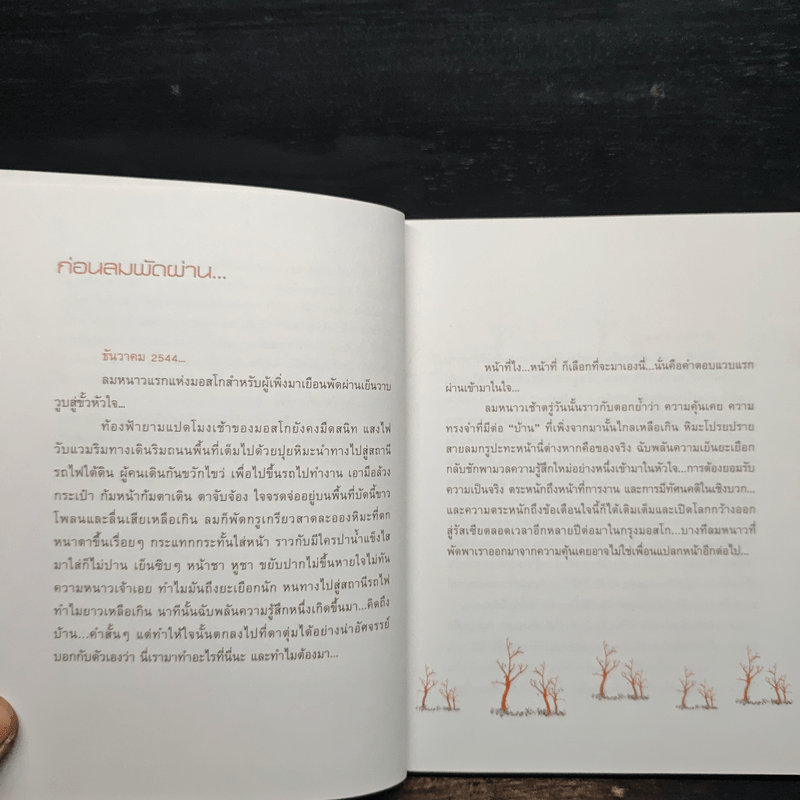 ก่อนลมพัดผ่าน...
ธันวาคม 2544...
ลมหนาวแรกแห่งมอสโกสำหรับผู้เพิ่งมาเยือนพัดผ่านเย็นวาบ
วูบสู่ขั้วหัวใจ...
ท้องฟ้ายามแปดโมงเช้าของมอสโกยังคงมืดสนิท แสงไฟ
วับแวมริมทางเดินริมถนนพื้นที่เต็มไปด้วยปุยหิมะนำทางไปสู่สถานี
รถไฟใต้ดิน ผู้คนเดินกันขวักไขว่ เพื่อไปขึ้นรถไปทำงาน เอามือล้วง
กระเป๋า ก้มหน้าก้มตาเดิน ตาจับจ้อง ใจจรดจ่ออยู่บนพื้นที่บัดนี้ขาว
โพลนและลื่นเสียเหลือเกิน ลมก็พัดกรูเกรียวสาดละอองหิมะที่ตก
หนาตาขึ้นเรื่อยๆ กระแทกกระทั้นใส่หน้า ราวกับมีใครปาน้ำแข็งไส
มาใส่ก็ไม่ปาน เย็นซิบๆ หน้าชา หูชา ขยับปากไม่ขึ้นหายใจไม่ทัน
ความหนาวเจ้าเอย ทำไมมันถึงยะเยือกนัก หนทางไปสู่สถานีรถไฟ
ทำไมยาวเหลือเกิน นาทีนั้นฉับพลันความรู้สึกหนึ่งเกิดขึ้นมา...คิดถึง
บ้าน...คำสั้นๆ แต่ทำให้ใจนั้นตกลงไปที่ตาตุ่มได้อย่างน่าอัศจรรย์
บอกกับตัวเองว่า นี่เรามาทำอะไรที่นี่นะ และทำไมต้องมา...
หน้าที่ไง...หน้าที่ ก็เลือกที่จะมาเองนี่...นั่นคือคำตอบแวบแรก
ผ่านเข้ามาในใจ...
ลมหนาวเช้าตรู่วันนั้นราวกับตอกย้ำว่า ความคุ้นเคย ความ
ทรงจำที่มีต่อ “บ้าน” ที่เพิ่งจากมานั้นไกลเหลือเกิน หิมะโปรยปราย
สายลมกรูปะทะหน้านี่ต่างหากคือของจริง ฉับพลันความเย็นยะเยือก
กลับชักพามวลความรู้สึกใหม่อย่างหนึ่งเข้ามาในหัวใจ...การต้องยอมรับ
ความเป็นจริง ตระหนักถึงหน้าที่การงาน และการมีทัศนคติในเชิงบวก...
และความตระหนักถึงข้อเตือนใจนี้ก็ได้เติมเต็มและเปิดโลกกว้างออก
สู่รัสเซียตลอดเวลาอีกหลายปีต่อมาในกรุงมอสโก...บางทีลมหนาวที่
พัดพาเราออกมาจากความคุ้นเคยอาจไม่ใช่เพื่อนแปลกหน้าอีกต่อไป...